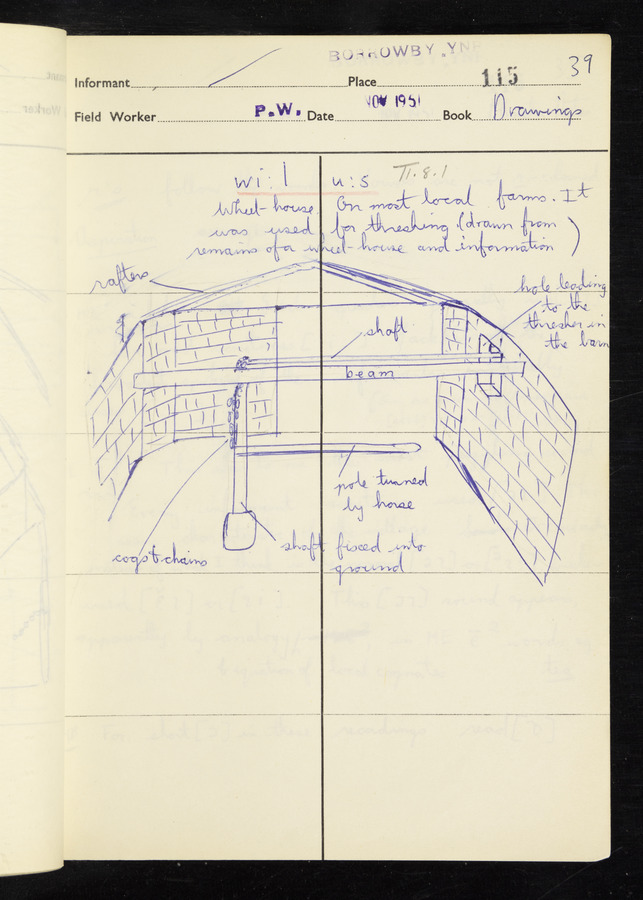 BORROWBY .YNR
39
Informant Place 115
Field Worker P.W. Date NOV 1951 Book Drawings
wi:l u:s II.8.1
Wheel-house. On most local farms. It
was used for threshing. (drawn from
remains of a wheel-house and information )
rafters
hole leading
to the
thresher in
the barn
shaft
beam
pole turned
by horse
cogs & chains
shaft fixed into
ground